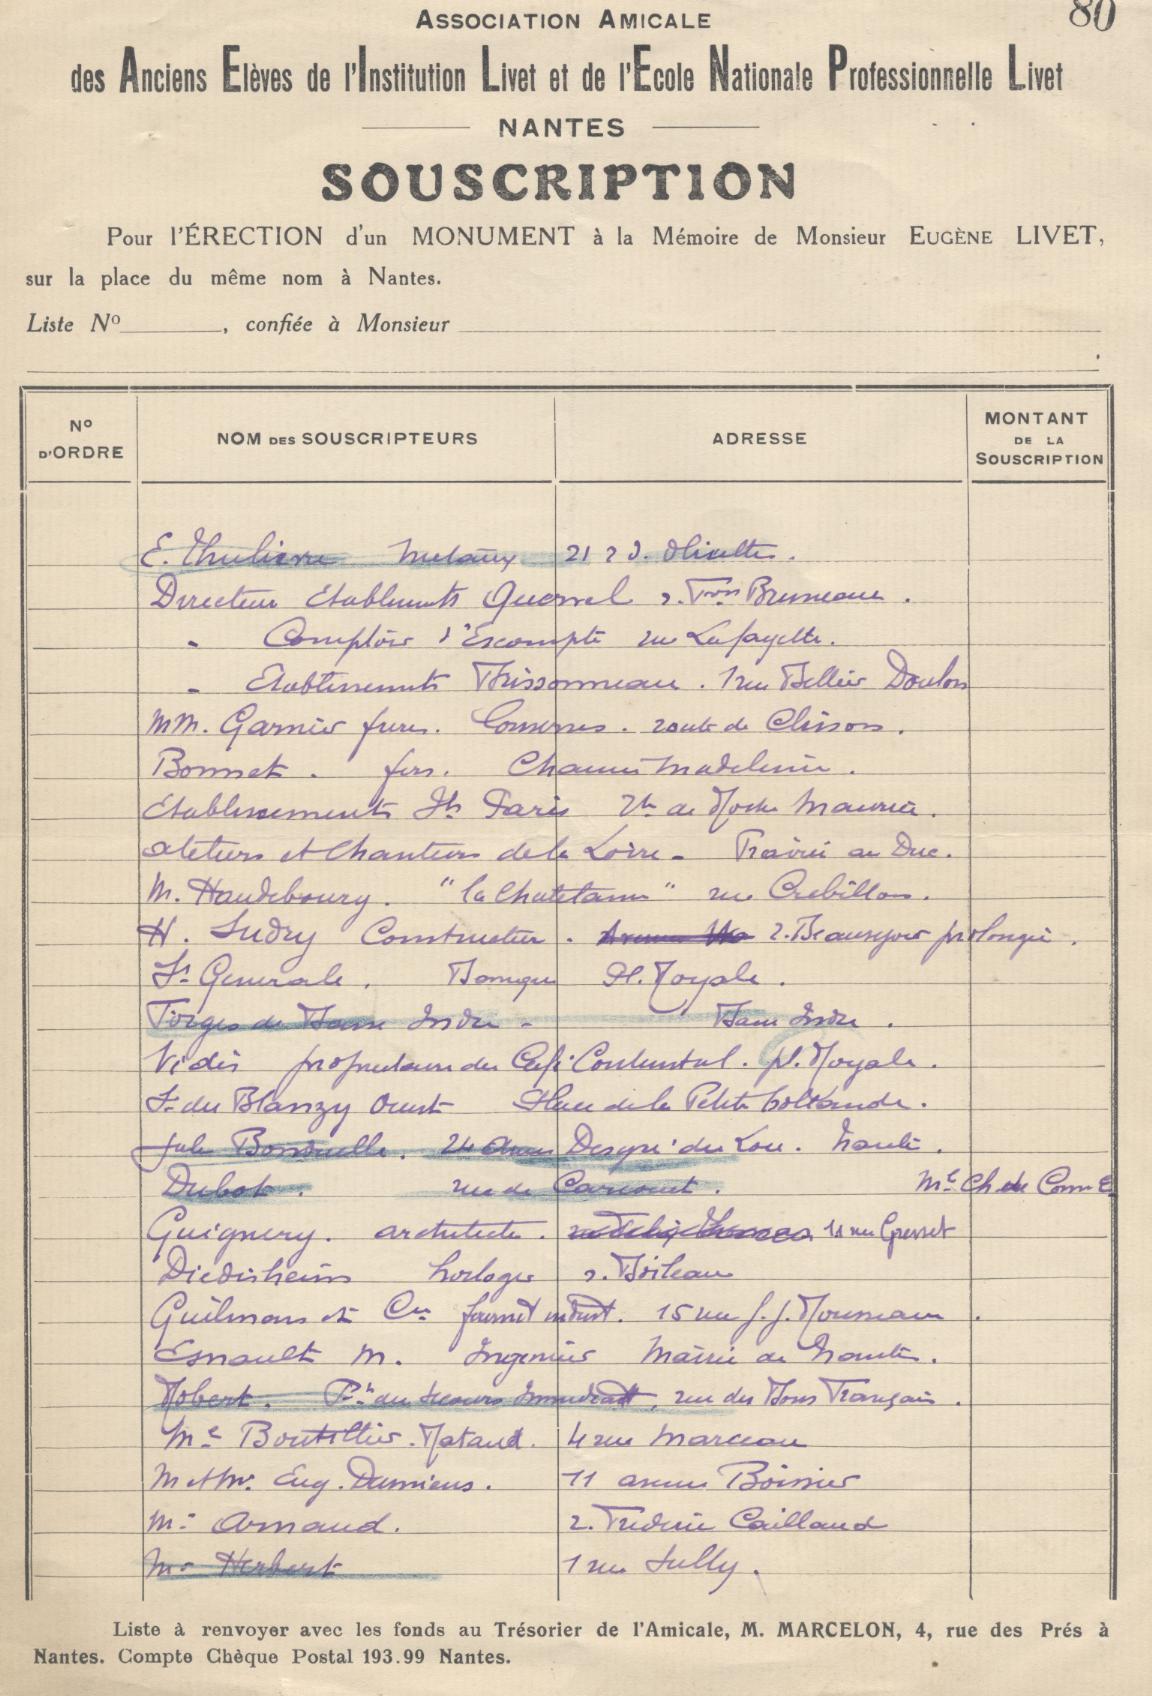 80
ASSOCIATION AMICALE
des Anciens Elèves de l'Institution Livet et de l'Ecole Nationale Professionnelle Livet
NANTES
SOUSCRIPTION
Pour l'ÉRECTION d'un MONUMENT à la Mémoire de Monsieur EUGÈNE LIVET,
sur la place du même nom à Nantes.
Liste No , confiée à Monsieur
No D'ORDRE NOM DES SOUSCRIPTEURS ADRESSE MONTANT DE LA SOUSCRIPTION
E. Metaux 21 r d. Olivettes.
Directeur Etablissements Quesnel r. Fron Bruneau.
- Comptoir d'Escompte rue Lafayette.
- Etablissements Brissonneau. 1 rue Bellier Doulon
MM. Garnier frères. Conserves. route de Clisson.
Bonnet. fers. Chaussée Madeleine.
Etablissements Jh Paris Bd de Roche Maurice.
Ateliers et Chantiers de la Loire - Prairie au Duc.
M. Haudebourg. "la Chatelaine" rue Crebillon.
H. Sudry Constructeur. r. Beausejour prolongée.
Sté Generale. Banque Pl. Royale.
Forges de Basse Indre - Basse Indre.
Vidis proprietaire du Café Continental. pl. Royale.
Sté du Blanzy Ouest Place de la Petite Hollande.
Jules Bonduelle. 24 Avenue Desgré du Lou. Nantes
Dubot. rue de Carcouet. Mc Ch. de Comm E
Guignery. architecte. 11 rue Gresset
Diedisheim horloger r. Boileau
Guilmans et Cie fournit indust. 15 rue J. J. Rousseau.
Esnault M. Ingenieur Mairie de Nantes.
Robert. Pt du Secours Immediat, rue des Bons Français.
Me Boutillier. Rataud. 4 rue Marceau
M et Me Eug. Damiens. 11 avenue Boissier
Me Arnaud. 2. Frederic Cailliaud
Me Herbert 1 rue Sully.
Liste à renvoyer avec les fonds au Trésorier de l'Amicale, M. MARCELON, 4, rue des Prés à
Nantes. Compte Chèque Postal 193.99 Nantes.